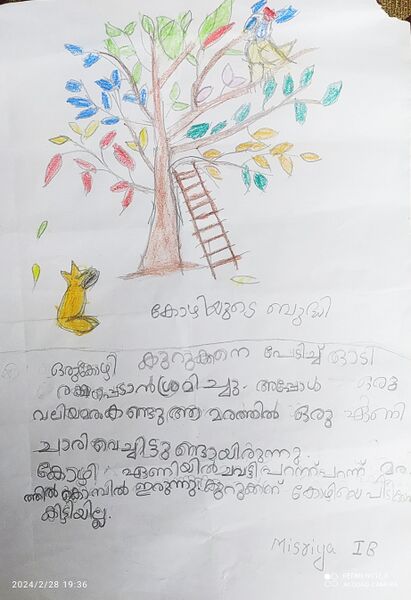 കോഴിയുടെ ബുദ്ധി
ഒരുകോഴി കുറുക്കനെ പേടിച്ച് ഓടി
രക്ഷപ്പെടാൻശ്രമിച്ചു. അപ്പോൾ ഒരു
വലിയമരംകണ്ടു ആ മരത്തിൽ ഒരു ഏണി
ചാരിവെച്ചിട്ടുണ്ടായിരുന്നു.
കോഴി ഏണിയിൽചവട്ടിപറന്ന്പറന്ന് മര
ത്തിൽകൊമ്പിൽ ഇരുന്നു കുറുക്കന് കോഴിയെ പിടിക്കാൻ
കിട്ടിയില്ല.
Misriya IB
2024/2/28 19:36